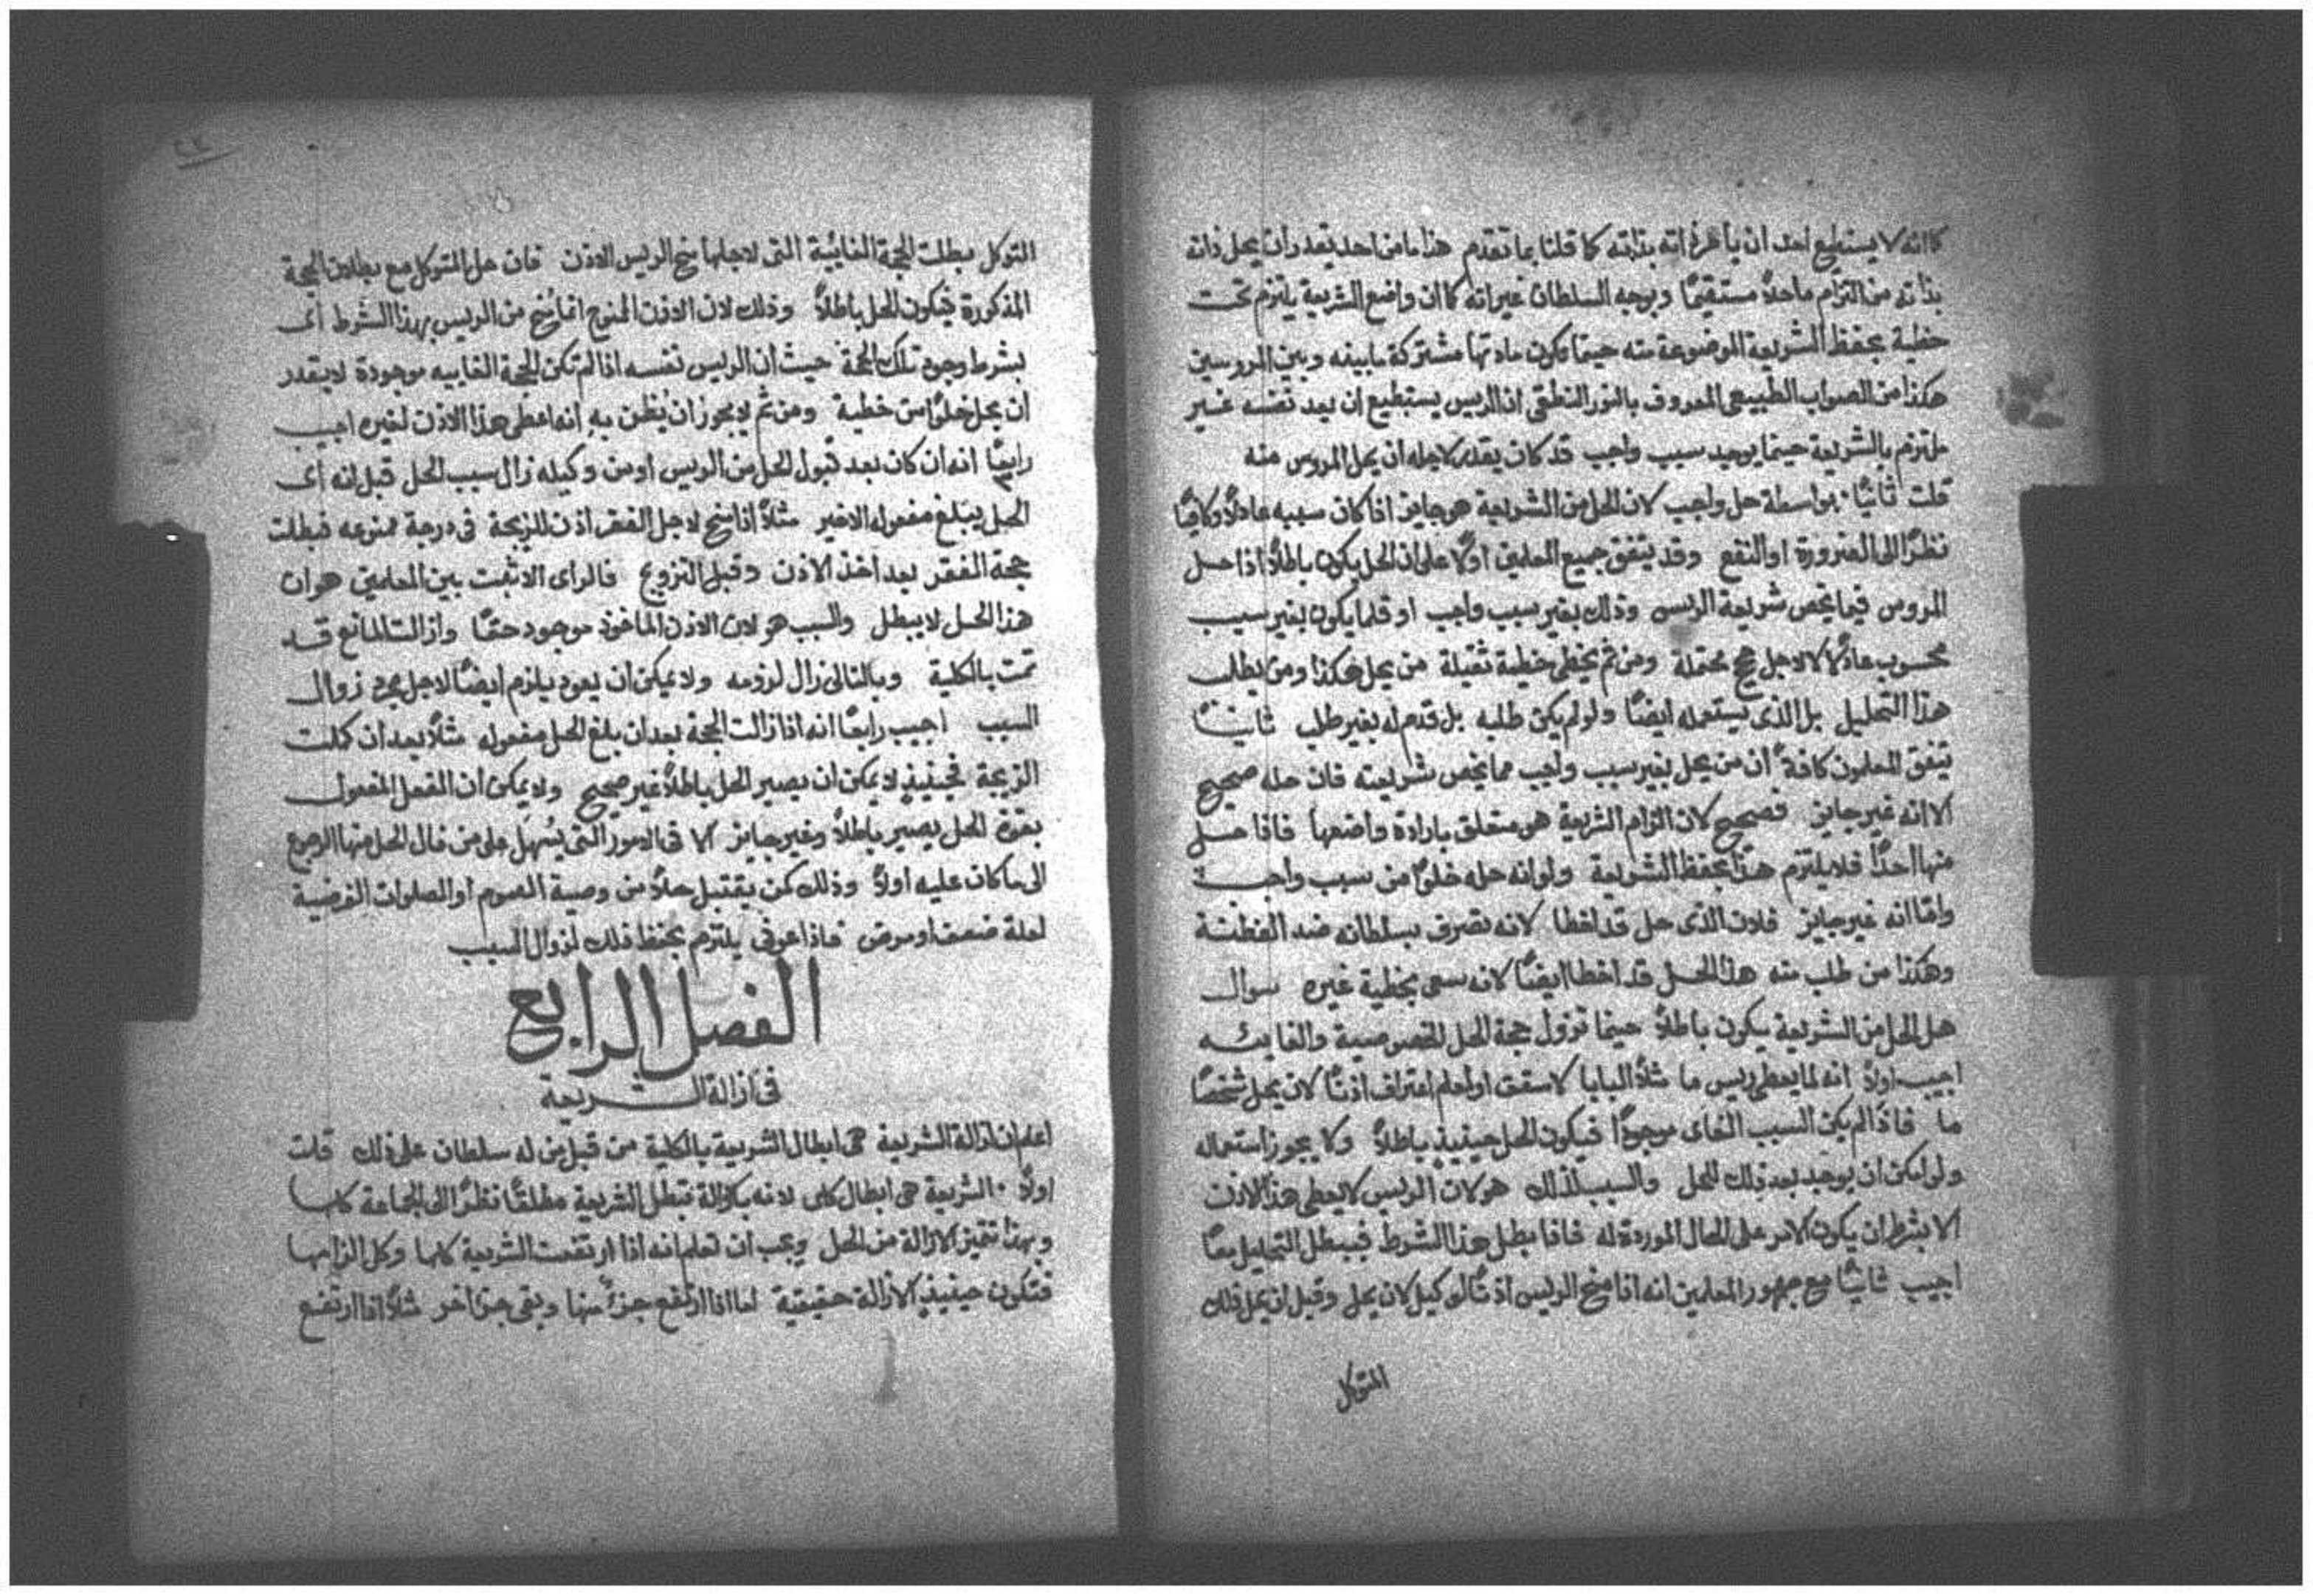 كما انه لا يستطيع احد ان يأمر ذاته بذاته كما قلنا بما تقدم هذا ما من احد يقدر ان يحل ذاته
بذاته من التزام ما حلاً مستقيمًا وبوجه السلطان غير انه كما ان واضع الشريعة يلتزم تحت
خطية بحفظ الشريعة الموضوعة منه حينما تكون مادتها مشتركة ما بينه وبين المروسين
هكذا من الصواب الطبيعي المعروف بالنور النطقي ان الريس يستطيع ان يعد نفسه غير
ملتزم بالشريعة حينما يوجد سبب واجب قد كان يقدر لاجله ان يحل المروس منه
قلت ثانيًا بواسطة حل واجب لان الحل من الشريعة هو جايز اذا كان سببه عادلاً وكافيًا
نظرًا الى الضرورة او النفع وقد يتفق جميع المعلمين اولاً على ان الحل يكون باطلاً اذا حل
المروس فيما يخص شريعة الريس وذلك بغير سبب واجب او قلما يكون بغير سبب
محسوب عادلاً لاجل حجج محتملة ومن ثم يخطي خطية ثقيلة من يحل هكذا ومن يطلب
هذا التحليل بل الذي يستعمله ايضًا ولو لم يكن طلبه بل قدم له بغير طلب ثانيًا
يتفق المعلمون كافةً ان من يحل بغير سبب واجب مما يخص شريعته فان حله صحيح
الا انه غير جايز فصحيح لان الزام الشريعة هو متعلق بارادة واضعها فاذا حل
منها احدًا فلا يلتزم هذا بحفظ الشريعة ولو انه حله خلوًا من سبب واجب
واما انه غير جايز فلان الذي حل قد اخطا لانه تصرف بسلطانه ضد الفطنة
وهكذا من طلب منه هذا الحل قد اخطا ايضًا لانه سعى بخطية غيره سوال
هل الحل من الشريعة يكون باطلاً حينما تزول حجة الحل الخصوصية والغاييه
اجيب اولاً انه لما يعطي ريس ما مثلاً البابا لاسقف او لمعلم اعتراف اذنًا لان يحل شخصًا
ما فاذا لم يكن السبب الغاي موجودًا فيكون الحل حينيذٍ باطلاً ولا يجوز استعماله
ولو امكن ان يوجد بعد ذلك الحل والسبب لذلك هو لان الريس لا يعطي هذا الاذن
الا بشرط ان يكون الامر على الحال الموردة له فاذا بطل هذا الشرط فيبطل التحليل معًا
اجيب ثانيًا مع جمهور المعلمين انه اذا منح الريس اذنًا لوكيل لان يحل وقبل ان يحل ذلك
المتوكل
المتوكل بطلت الحجة الغائية التي لاجلها منح الريس الاذن فان حل المتوكل مع بطلان الحجة
المذكورة فيكون الحل باطلاً وذلك لان الاذن الممنوح انما مُنح من الريس بهذا الشرط اي
بشرط وجود تلك الحجة حيث ان الريس نفسه اذا لم تكن الحجة الغاييه موجودة لا يقدر
ان يحل خلوًا من خطية ومن ثم لا يجوز ان يُظن به انه اعطى هذا الاذن لغيره اجيب
رابعًا انه ان كان بعد قبول الحل من الريس او من وكيله زال سبب الحل قبل انه اي
الحل يبلغ مفعوله الاخير مثلاً اذا منح لاجل الفقر اذن للزيجة في درجة ممنوعه فبطلت
حجة الفقر بعد اخذ الاذن وقبل التزويج فالراي الاثبت بين المعلمين هو ان
هذا الحل لا يبطل والسبب هو لان الاذن الماخوذ موجود حقًا وازالت المانع قد
تمت بالكلية وبالتالي زال لزومه ولا يمكن ان يعود يلزم ايضًا لاجل مجرد زوال
السبب اجيب رابعًا انه اذا زالت الحجة بعد ان بلغ الحل مفعوله مثلاً بعد ان كملت
الزيجة فحينيذٍ لا يمكن ان يصير الحل باطلاً غير صحيح ولا يمكن ان الفعل المفعول
بقوة الحل يصير باطلاً وغير جايز الا في الامور التي يسُهل على من نال الحل منها الرجوع
الى ما كان عليه اولاً وذلك كمن يقتبل حلاً من وصية الصوم او الصلوات الفرضية
لعلة ضعف او مرض فاذا عوفي يلتزم بحفظ ذلك لزوال السبب
الفصل الرابع
في ازالة الشريعة
اعلم ان ازالة الشريعة هي ابطال الشريعة بالكلية من قبل من له سلطان على ذلك قلت
اولاً الشريعة هي ابطال كلي لانه بالازالة تبطل الشريعة مطلقًا نظرًا الى الجماعة كلها
وبهذا تتميز الازالة من الحل ويجب ان تعلم انه اذا ارتفعت الشريعة كلها وكل الزامها
فتكون حينيذٍ الازالة حقيقية اما اذا ارتفع جزءٌ منها وبقي جزء اخر مثلاً اذا ارتفع